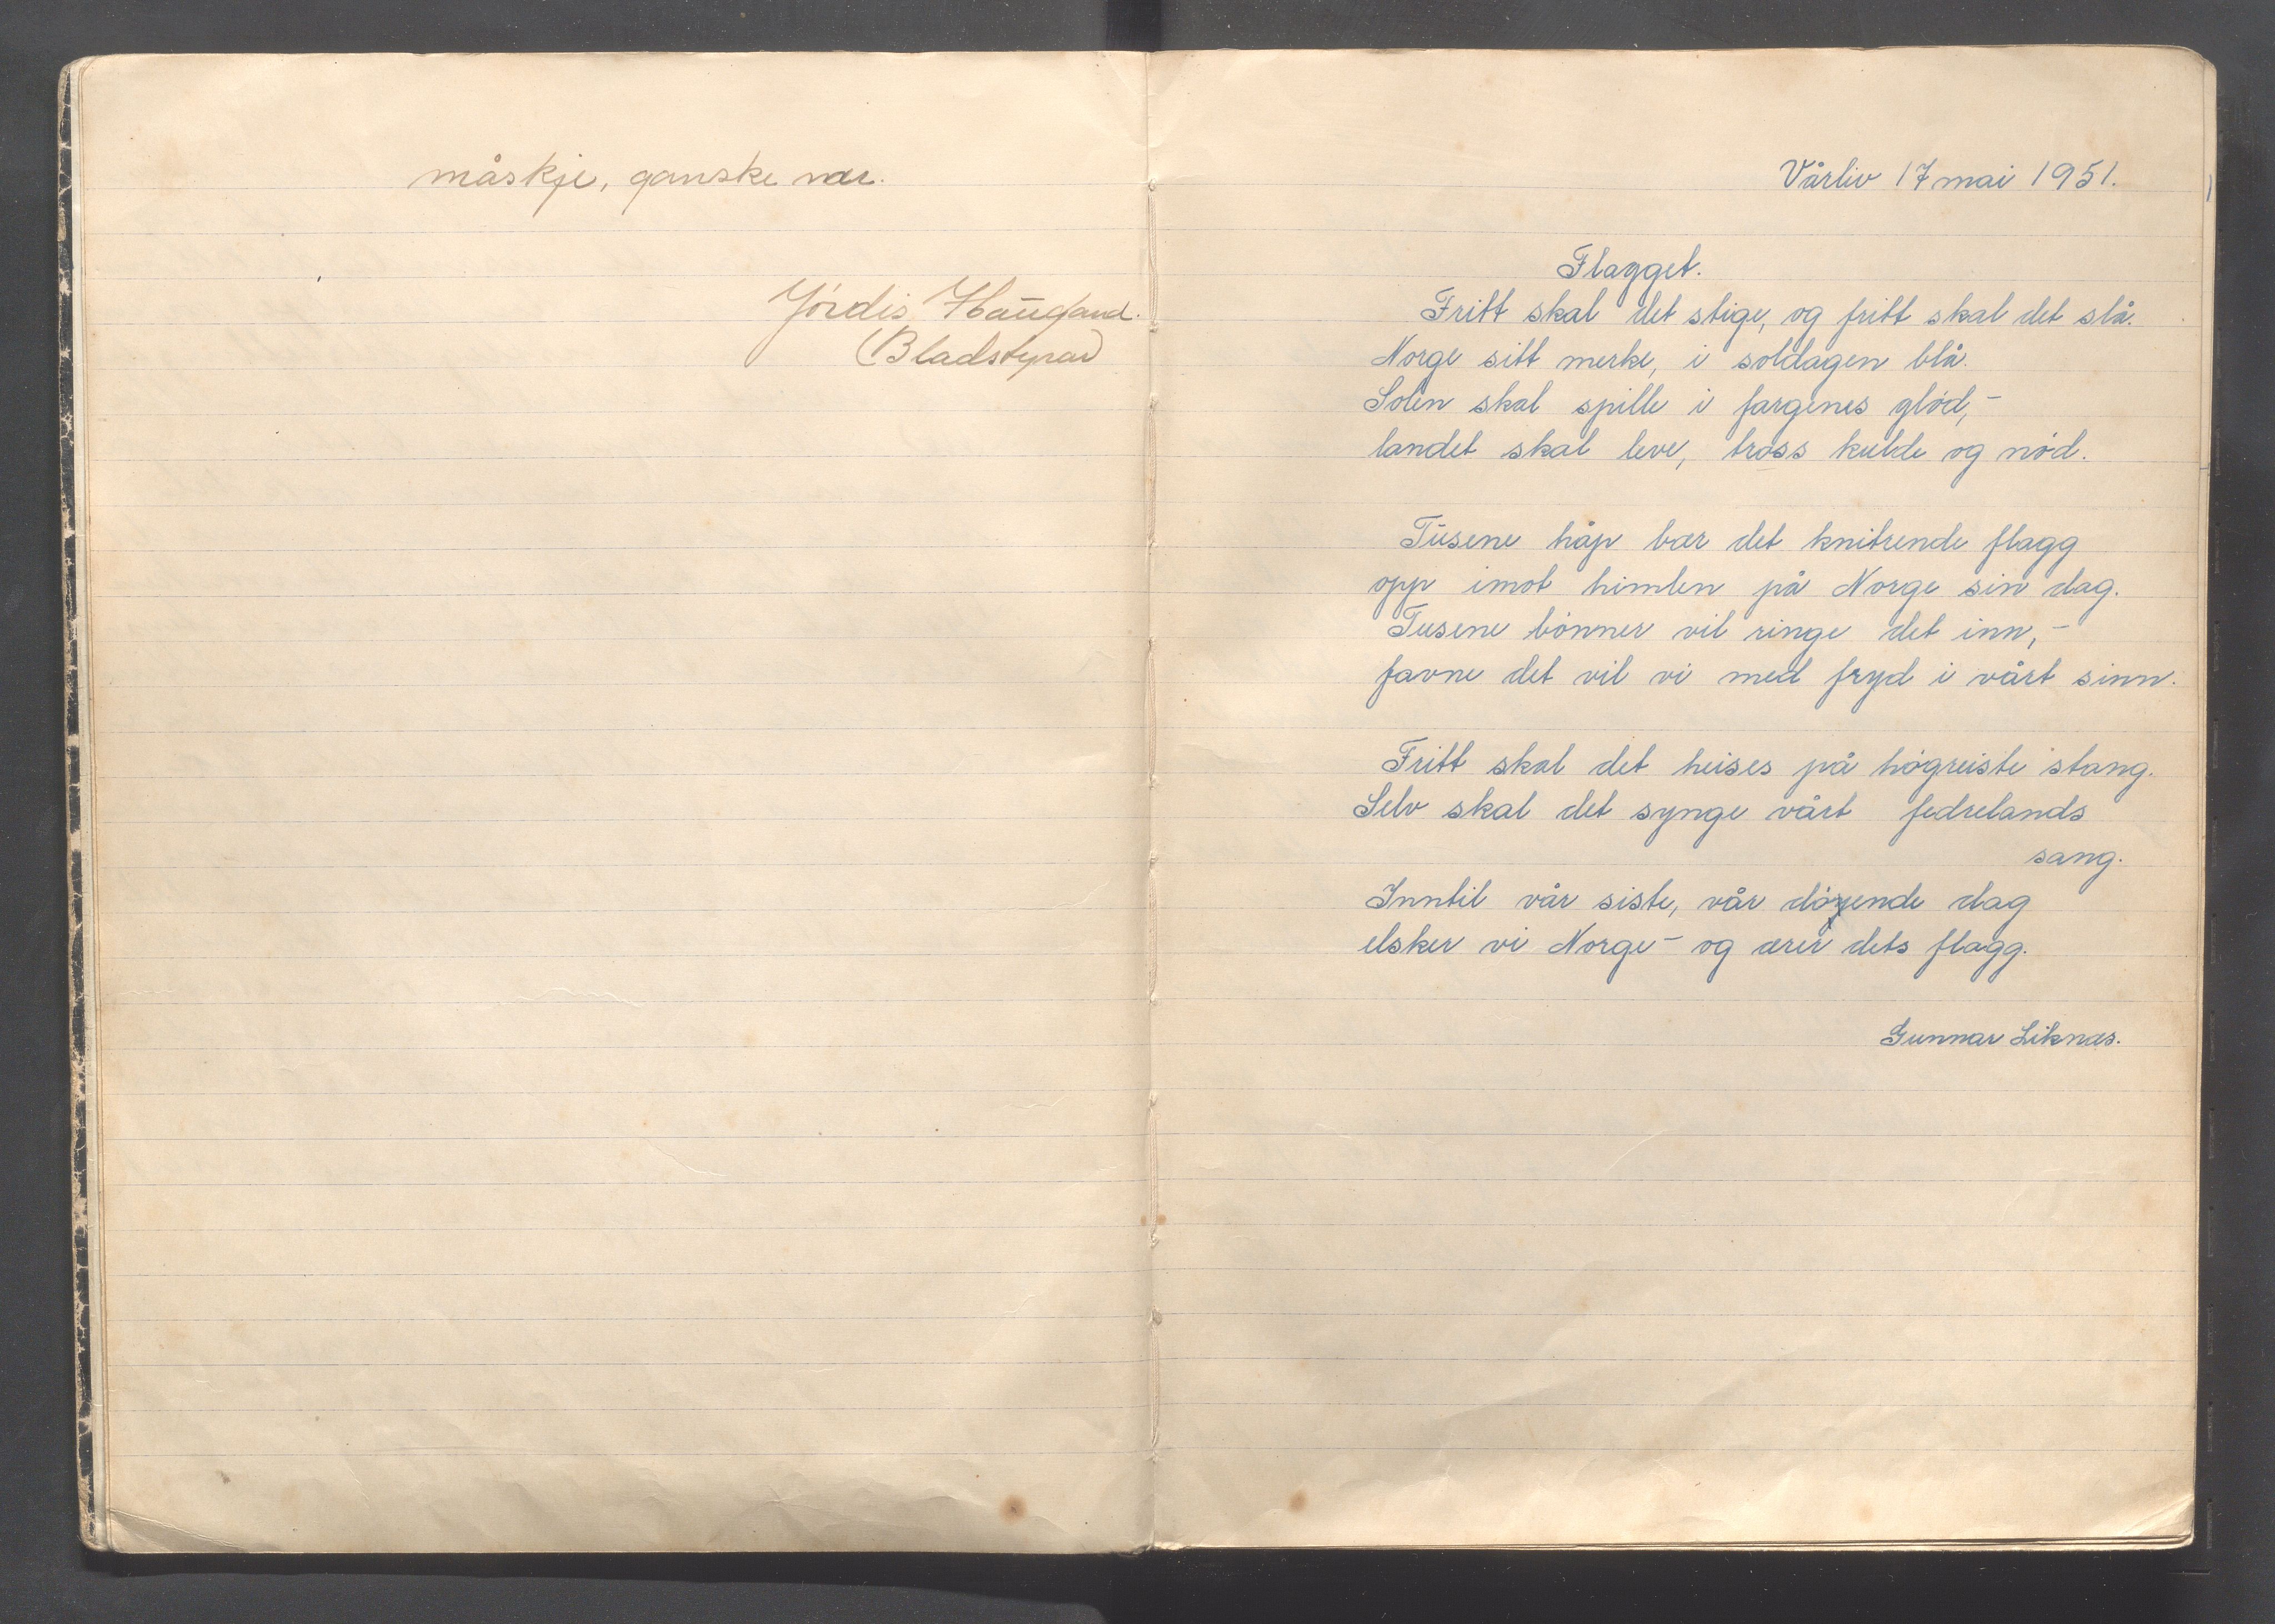 måskje, ganske nær.
Hjördis Haugland.
(Bladstyrar)
Vårliv 17 mai 1951.
Flagget.
Fritt skal det stige, og fritt skal det slå.
Norge sitt merke, i soldagen blå.
Solen skal spille i fargenes glød,-
landet skal leve, tross kulde og nød.
Tusene håp bær det knitrende flagg
opp imot himlen på Norge sin dag.
Tusene bønner vil ringe det inn,-
favne det vil vi med fryd i vårt sinn.
Fritt skal det heises på høgreiste stang.
Selv skal det synge vårt fedrelands
sang.
Inntil vår siste, vår døyende dag
elsker vi Norge - og ærer dets flagg.
Gunnar Liknæs.